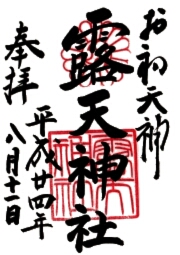 お初天神
露天神社
奉拝
平成廿四年
八月十一日